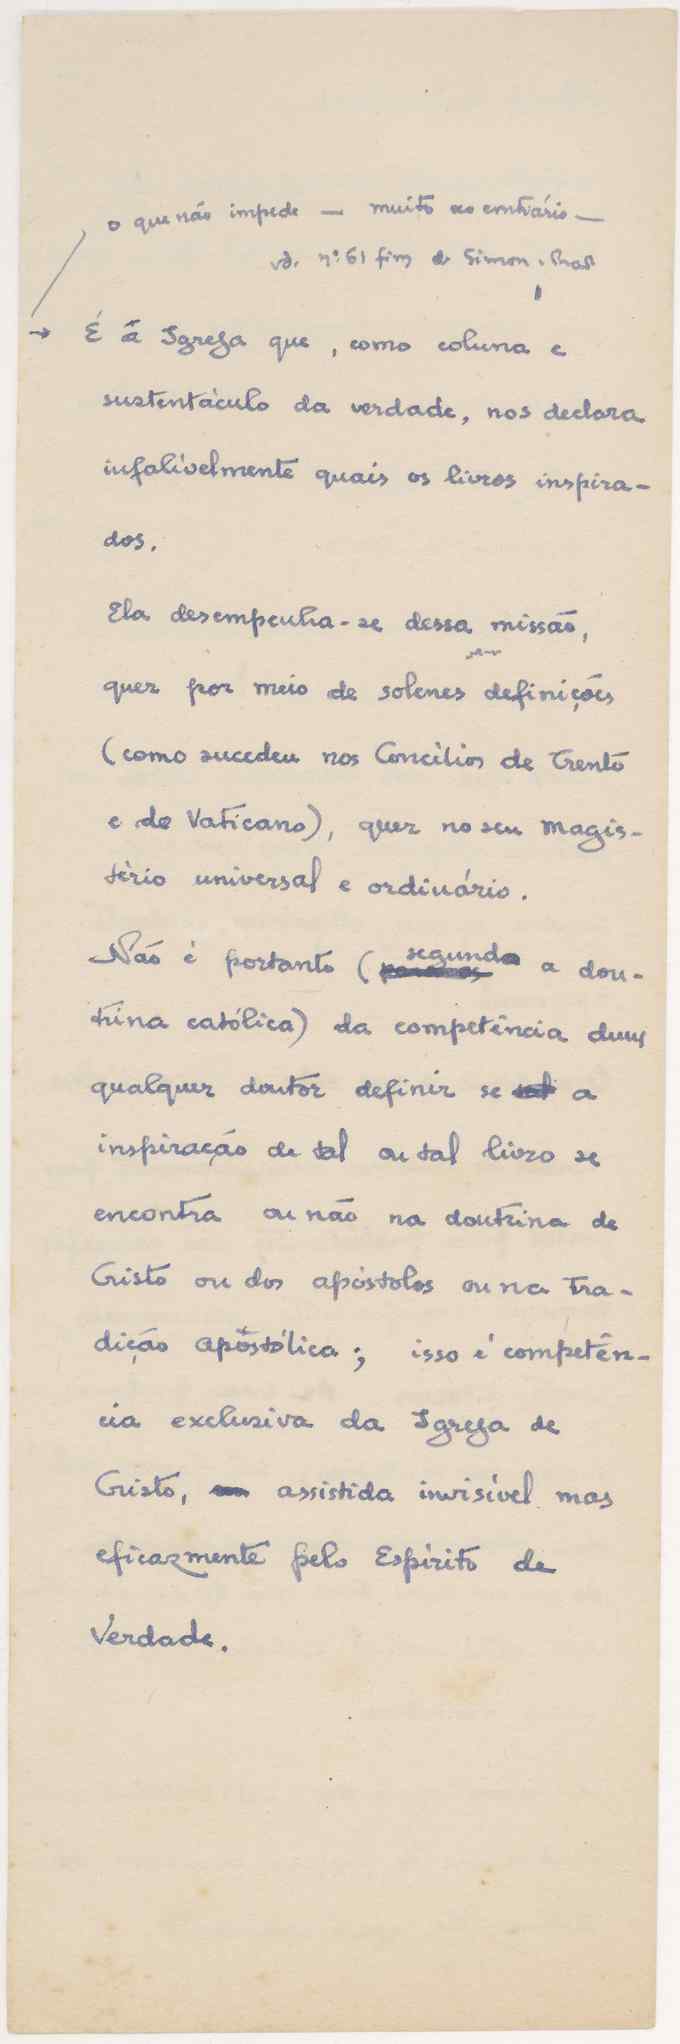 o que não impede — muito ao contrário —
vd. nº 61 fim de Simon-Prad
→ É a Igreja que, como coluna e
sustentáculo da verdade, nos declara
infalívelmente quais os livros inspira-
dos.
Ela desempenha-se dessa missão,
quer por meio de solenes definições
(como sucedeu nos Concílios de Trento
e do Vaticano), quer no seu magis-
tério universal e ordinário.
Não é portanto (segundo a dou-
trina católica) da competência dum
qualquer doutor definir se a
inspiração de tal ou tal livro se
encontra ou não na doutrina de
Cristo ou dos apóstolos ou na Tra-
dição apostólica; isso é competên-
cia exclusiva da Igreja de
Cristo, assistida invisível mas
eficazmente pelo Espírito de
Verdade.